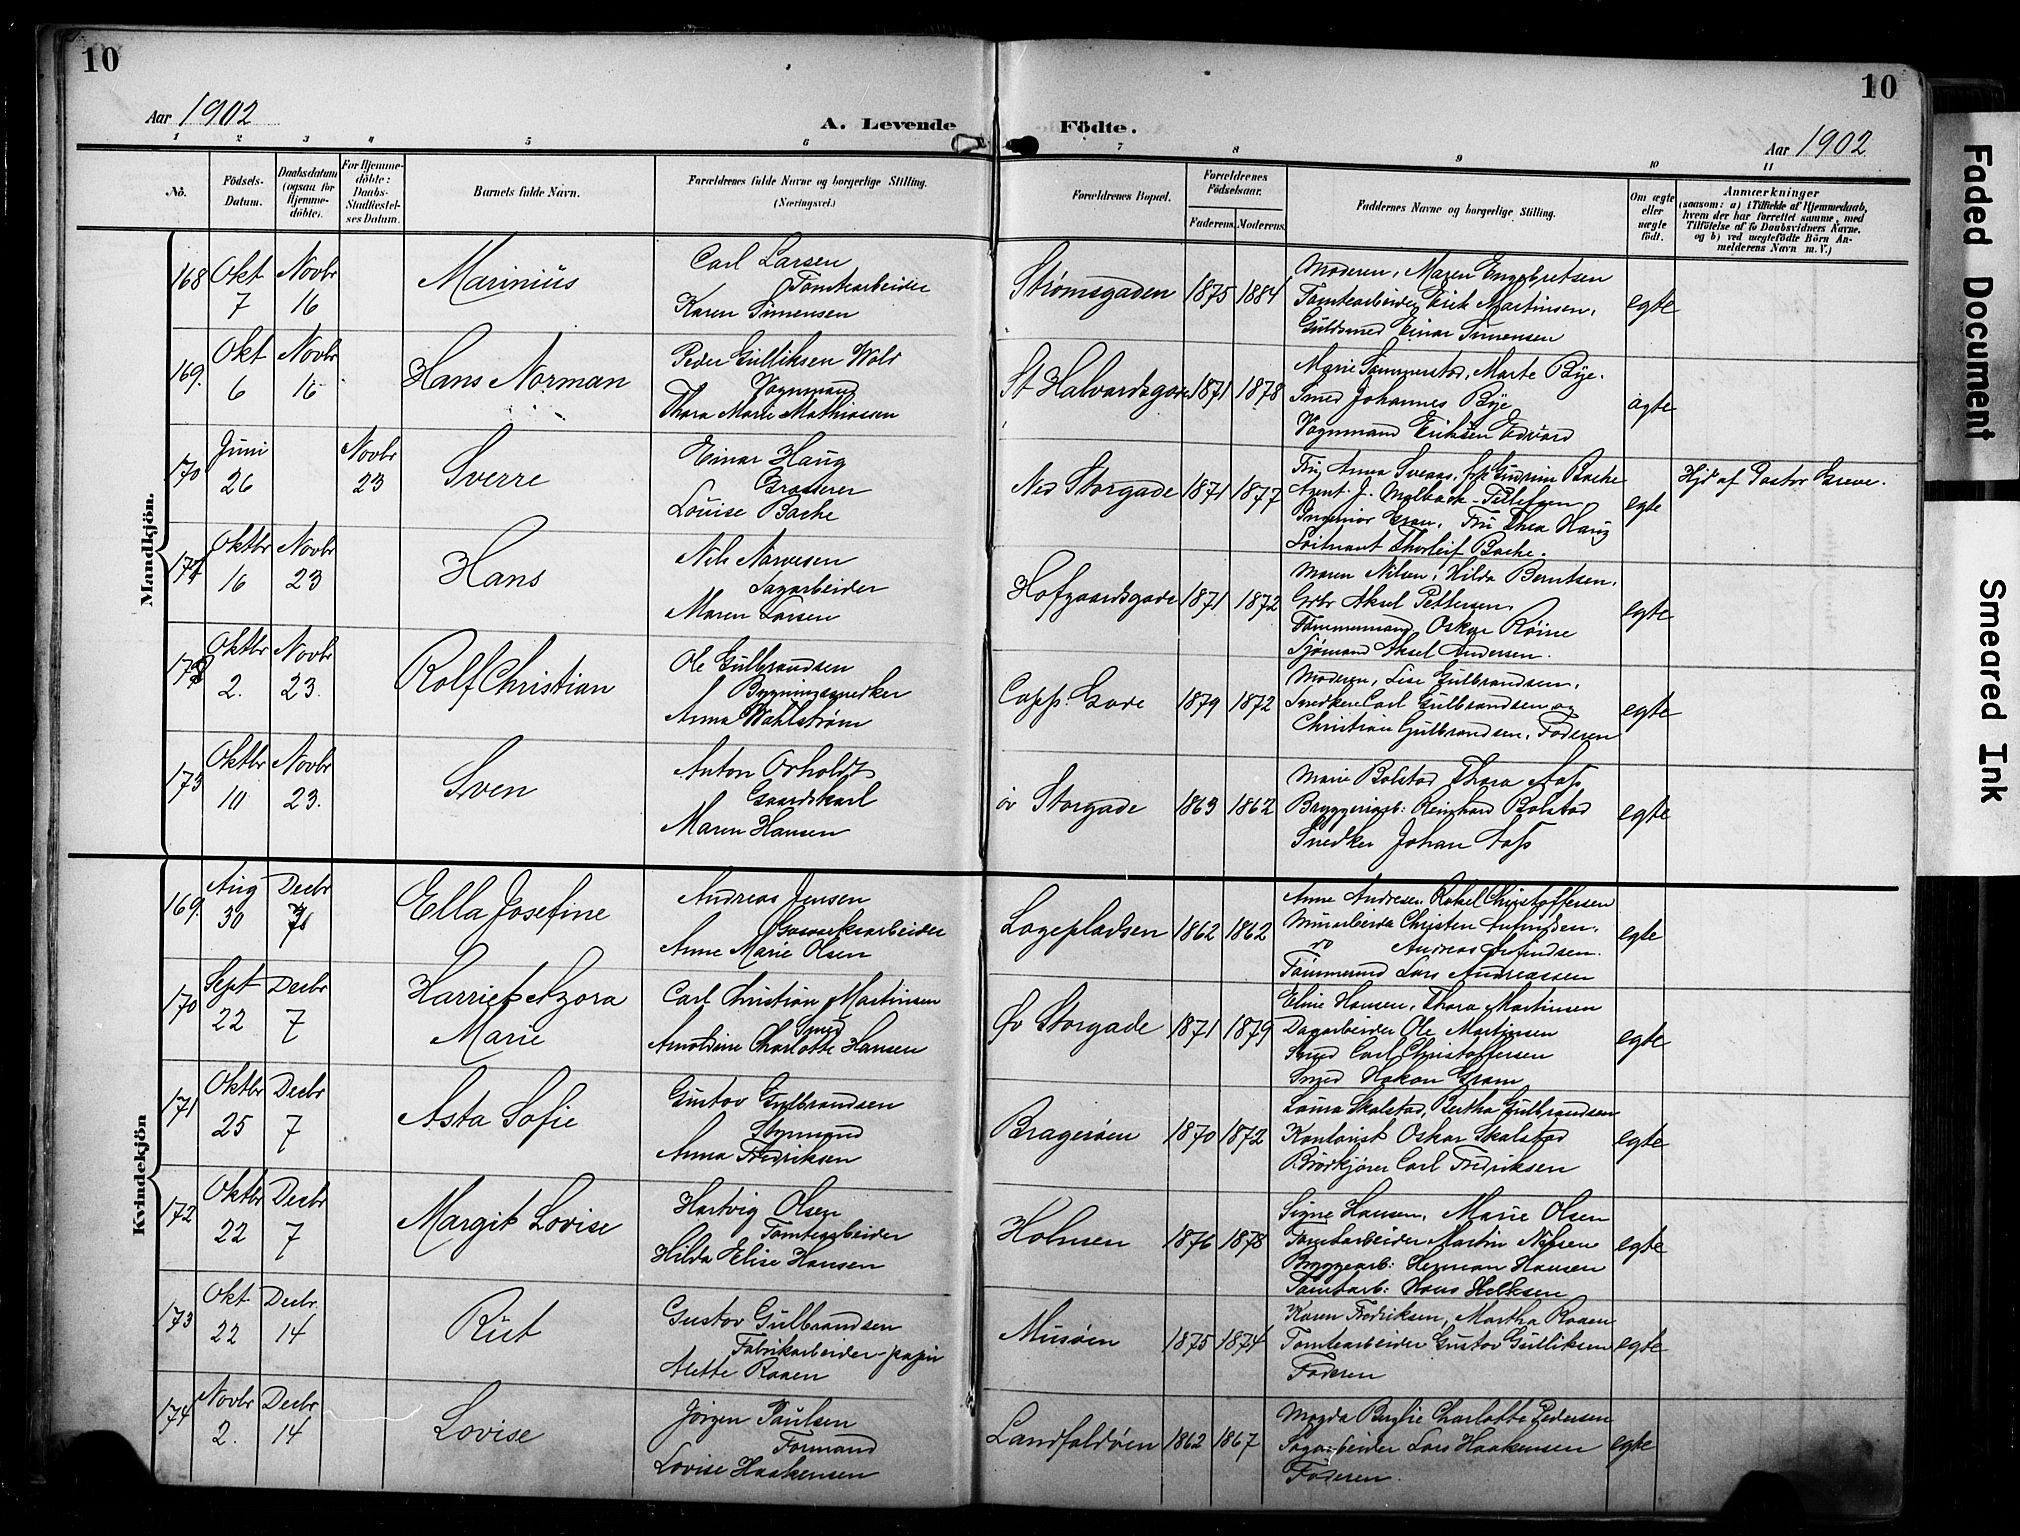 10
10
Aar 1902
A. Levende Födte.
Aar 1902
1 2 3 4 5 6 7 8 9 10 11
No.
Födsels-Datum.
Daabsdatum (ogsaa for Hjemme-döbte).
For Hjemme-döbte: Daabs-Stadfæstel-ses Datum.
Barnets fulde Navn.
Forældrenes fulde Navne og borgerlige Stilling.
(Næringsvei.)
Forældrenes Bopæl.
Forældrenes Födselsaar.
Faderens. Moderens.
Faddernes Navne og borgerlige Stilling.
Om ægte eller uægte født.
Anmærkninger
(saasom: a) i Tilfælde af Hjemmedaab,
hvem der har forrettet samme, med
Tilföielse af to Daabsvidners Navne.
og b) ved uægtefödte Börn An-
melderens Navn m. V.)
Mandkjön.
168 Okt 7 Novbr 16
Marinius
Carl Larsen
Tomtearbeider
Karen Simensen
Strømsgaden 1875 1884
Moderen, Maren Engebretsen
Tomtearbeider Erik Martinsen,
Guldsmed Einar Simensen
egte
169. Okt 6 Novbr 16
Hans Norman
Peder Gulliksen Wold
Vognmand
Thora Marie Mathiassen
St Halvardsgade 1871 1878
Marie Sommerstad, Marte Bye.
Smed Johannes Bye
Vognmand Eriksen Edvard
ægte
170 Juni 26 Novbr 23
Sverre
Einar Haug
Grosserer
Louise Bache
Ned Storgade 1871 1877
Fru Anna Sveaas, frk Gudrun Bache
Agent J. Tellefsen
Ingeniør Gran, Fru Thea Haug
Løitnant Thorleif Bache.
egte
Hjd af Pastor Greve.
171 Oktbr 16 Novbr 23
Hans
Nils Narvesen
Sagarbeider
Maren Larsen
Hofgaardsgade 1871 1872
Maren Nilsen, Hilda Berntsen,
Aksel Pettersen,
Tømmermand Oskar Røine
Sjømand Aksel Andersen.
egte
172 Oktbr 2. Novbr 23.
Rolf Christian
Ole Gulbrandsen
Bygningssnedker
Anna Wahlstrøm
Capp. Gade 1879 1872
Moderen, Lise Gulbrandsen,
Snedker Carl Gulbrandsen og
Christian Gulbrandsen, Faderen
egte
173 Oktbr 10 Novbr 23.
Sven
Anton Orholdt
Gaardskarl
Maren Hansen
øv Storgade 1863 1862
Marie Bolstad Thora Aass
Bryggeriarb: Reinhard Bolstad
Snedker Johan Aass
egte
Kvindekjön
169. Aug 30 Decbr 7
Ella Josefine
Andreas Jensen
Gasverksarbeider
Anne Marie Olsen
Lagepladsen 1862 1862
Anne Andresen Rakel Christoffersen
Murarbeider Christen Anfindsen,
do Andreas Anfindsen.
Tømmermd Lars Andreassen
egte
170 Sept 22 Decbr 7
Harriet Azora
Marie
Carl Christian Martinsen
Smed
Arnoldine Charlotte Hansen
Øv Storgade 1871 1879
Eline Hansen, Thora Martinsen
Dagarbeider Ole Martinsen
Smed Carl Christoffersen
Smed Hakon Gram
egte
171 Oktbr 25 Decbr 7
Asta Sofie
Gustav Gulbrandsen
Styrmand
Anna Fredriksen
Bragerøen 1870 1872
Laura Skalstad, Bertha Gulbrandsen
Kontorist Oskar Skalstad
Brødkjører Carl Fredriksen
egte
172 Oktbr 22 Decbr 7
Margit Lovise
Hartvig Olsen
Tomtearbeider
Hilda Elise Hansen
Holmen 1876 1878
Signe Hansen, Marie Olsen
Tomtearbeider Martin Nilsen
Bryggearb: Herman Hansen
Tomtarb: Hans Helksen
egte
173 Okt 22 Decbr. 14
Rut
Gustav Gulbrandsen
Fabrikarbeider-papir
Alette Raaen
Musøen 1875 1874
Karen Fredriksen, Martha Raaen
Tomtearbeider Gustav Gulliksen
Faderen
egte
174 Novbr 2. Decbr 14
Lovise
Jørgen Paulsen
Formand
Lovise Haakensen
Landfaldøen 1862 1867
Magda Charlotte Pedersen
Sagarbeider Lars Haakensen
Faderen.
egte
Faded Document
Smeared Ink